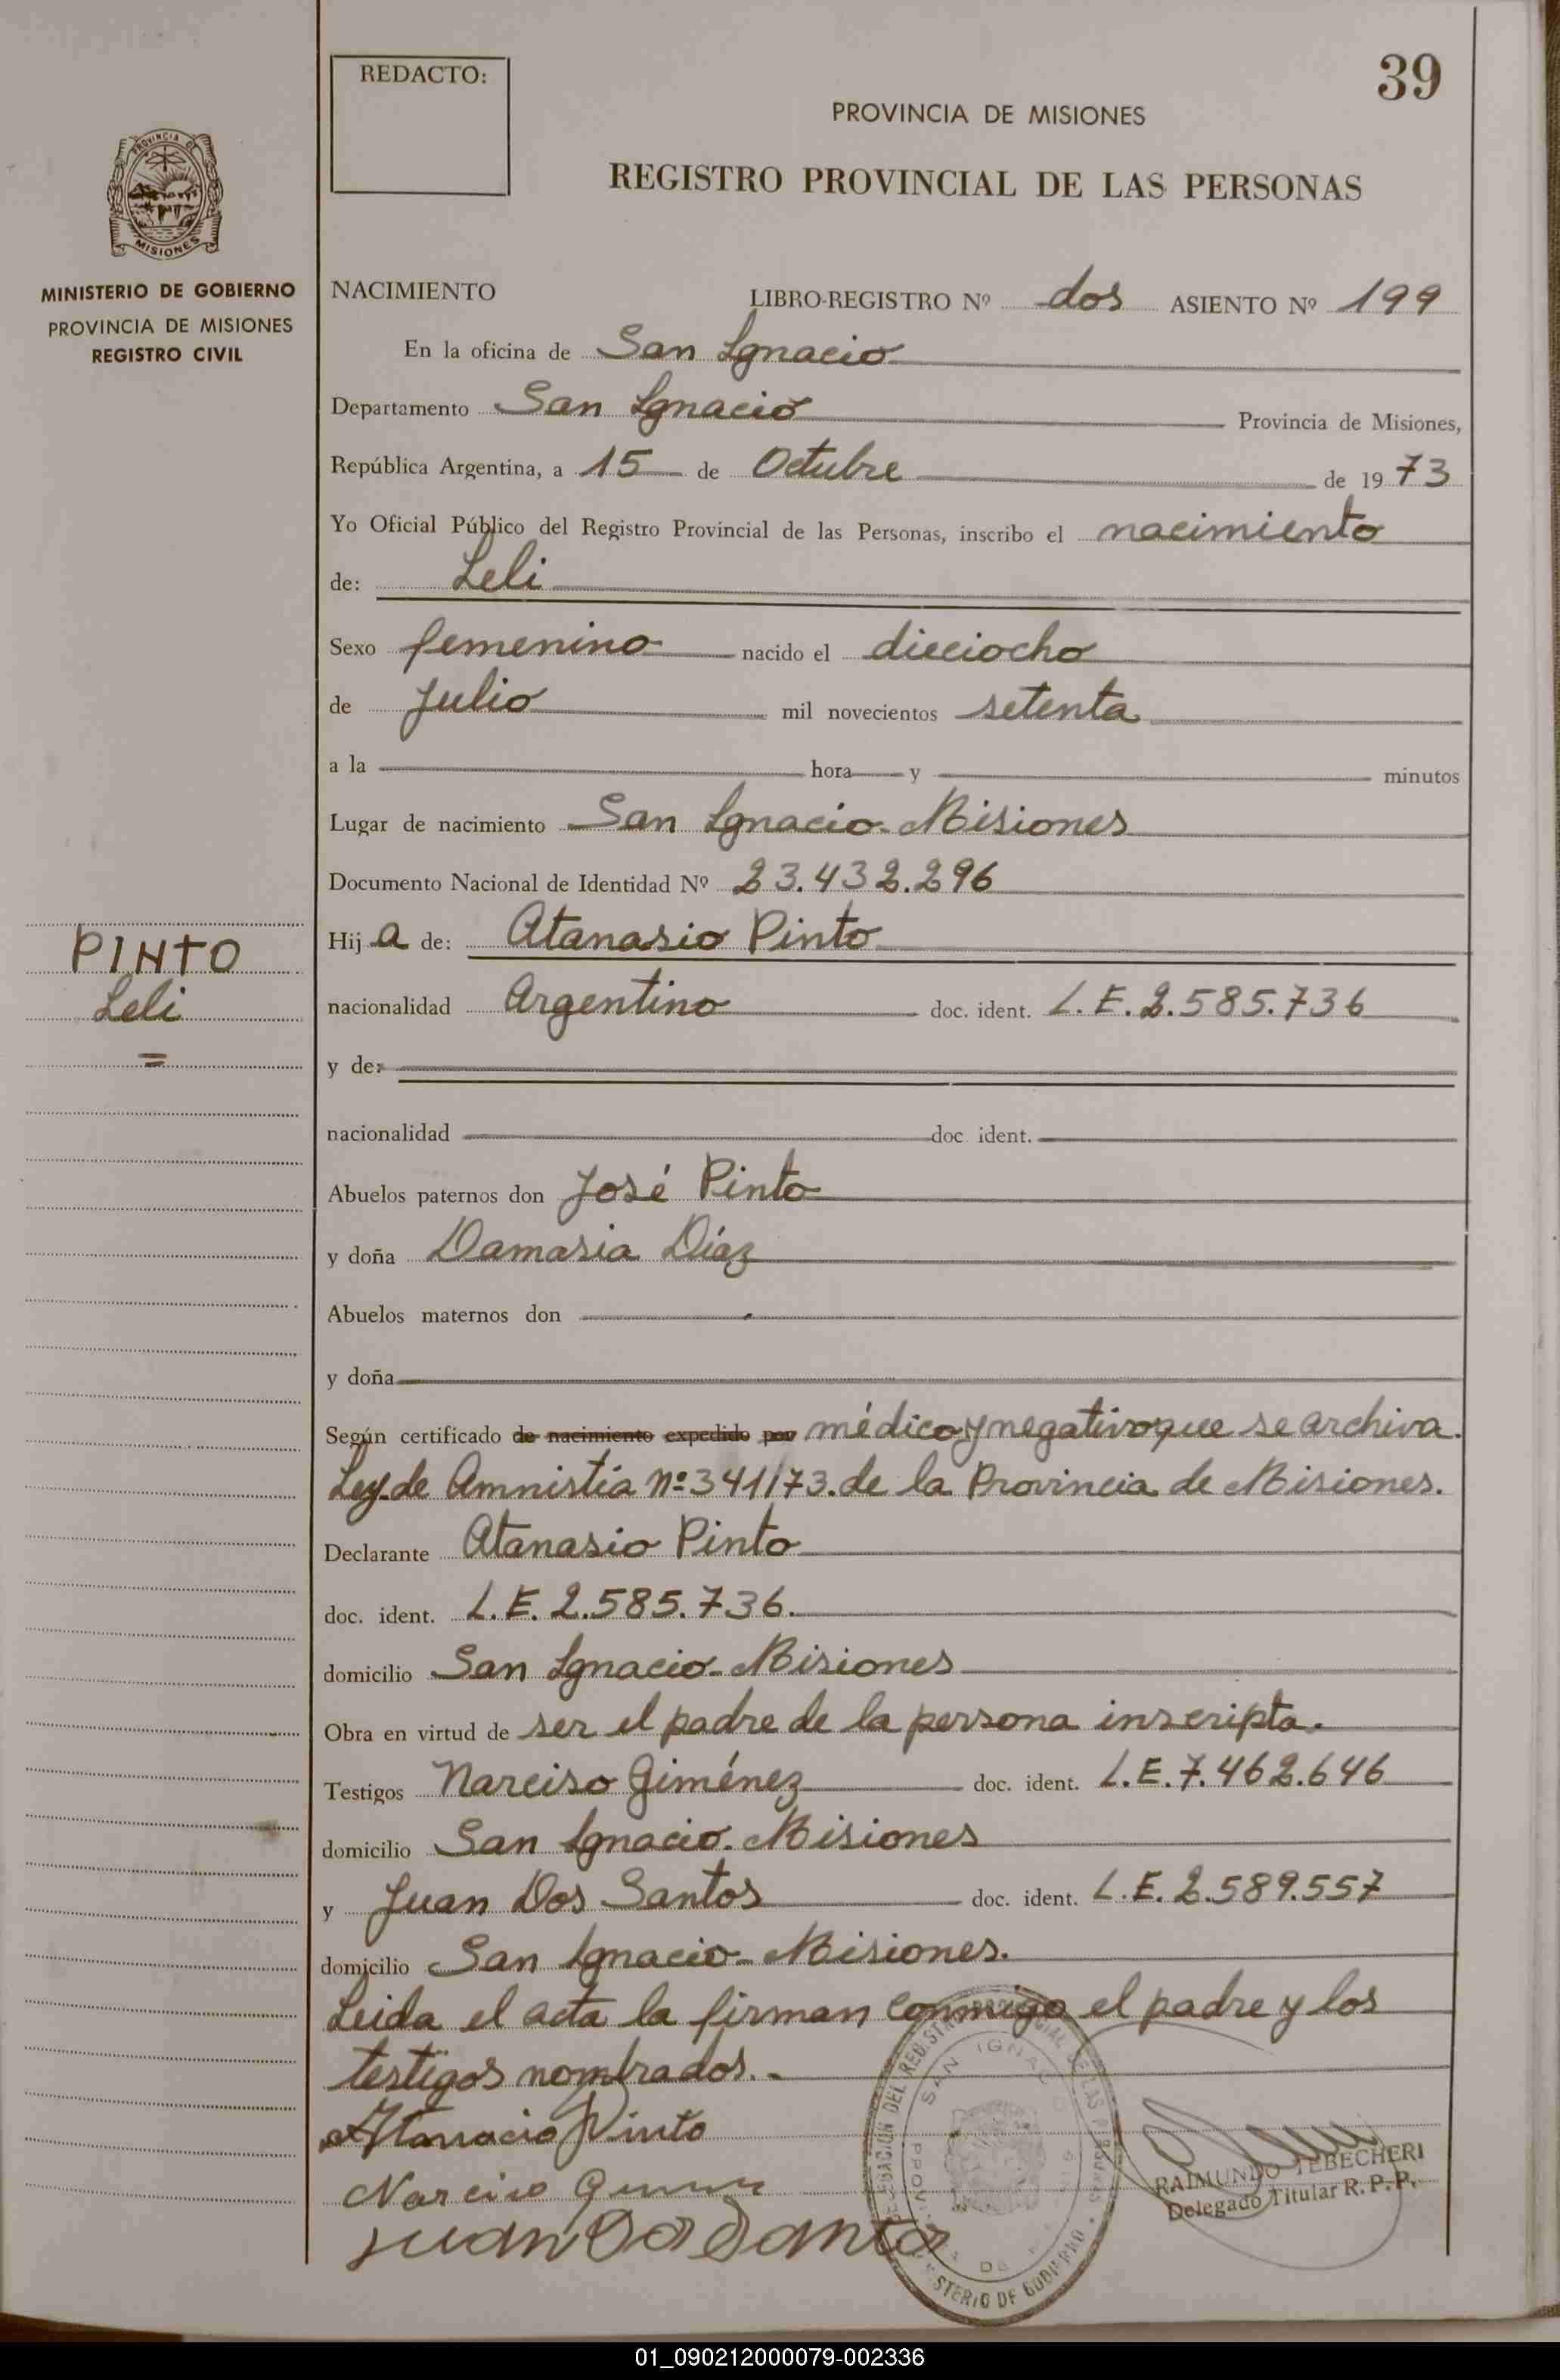 REDACTO:
39
PROVINCIA DE MISIONES
REGISTRO PROVINCIAL DE LAS PERSONAS
PROVINCIA DE
MISIONES
MINISTERIO DE GOBIERNO
PROVINCIA DE MISIONES
REGISTRO CIVIL
NACIMIENTO LIBRO-REGISTRO Nº dos ASIENTO Nº 199
En la oficina de San Ignacio
Departamento San Ignacio Provincia de Misiones,
República Argentina, a 15 de Octubre de 1973
Yo Oficial Público del Registro Provincial de las Personas, inscribo el nacimiento
de: Leli
Sexo femenino nacido el dieciocho
de Julio mil novecientos setenta
a la hora y minutos
Lugar de nacimiento San Ignacio-Misiones
Documento Nacional de Identidad Nº 23.432.296
PINTO
Leli
=
Hij a de: Atanasio Pinto
nacionalidad Argentino doc. ident. L.E.2.585.736
y de:
nacionalidad doc ident.
Abuelos paternos don José Pinto
y doña Damasia Díaz
Abuelos maternos don
y doña
Según certificado de nacimiento expedido por médico y negativo que se archiva.
Ley de Amnistía nº 341/73. de la Provincia de Misiones.
Declarante Atanasio Pinto
doc. ident. L.E. 2.585.736.
domicilio San Ignacio-Misiones
Obra en virtud de ser el padre de la persona inscripta.
Testigos Narciso Giménez doc. ident. L.E.7.462.646
domicilio San Ignacio-Misiones
y Juan Dos Santos doc. ident. L.E. 2.589.557
domicilio San Ignacio-Misiones.
Leida el acta la firman conmigo el padre y los
testigos nombrados.-
Atanacio Pinto
Narciso
Juan Do Santo
SAN IGNACIO
RAIMUNDO TEBECHERI
Delegado Titular R. P. P.
01_090212000079-002336